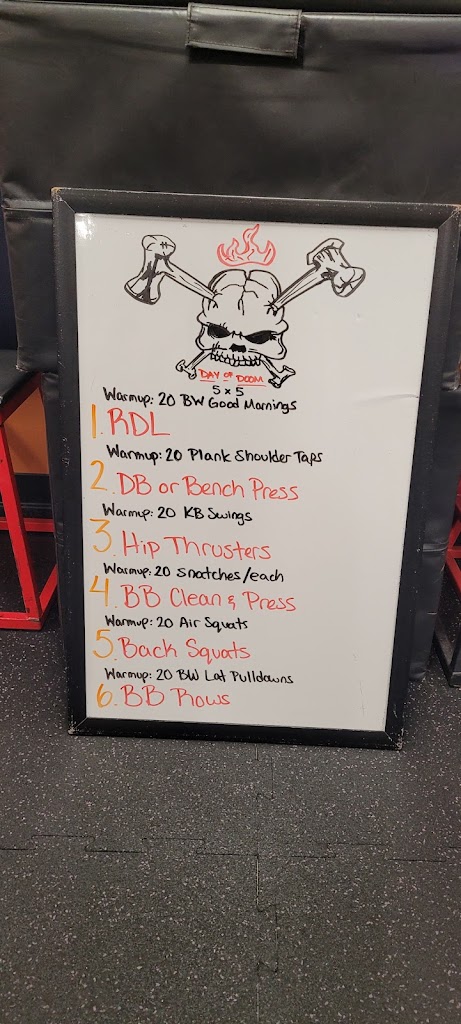 DAY OF DOOM
5 x 5
Warmup: 20 BW Good Mornings
1. RDL
Warmup: 20 Plank Shoulder Taps
2. DB or Bench Press
Warmup: 20 KB Swings
3. Hip Thrusters
Warmup: 20 Snatches/each
4. BB Clean & Press
Warmup: 20 Air Squats
5. Back Squats
Warmup: 20 BW Lat Pulldowns
6. BB Rows